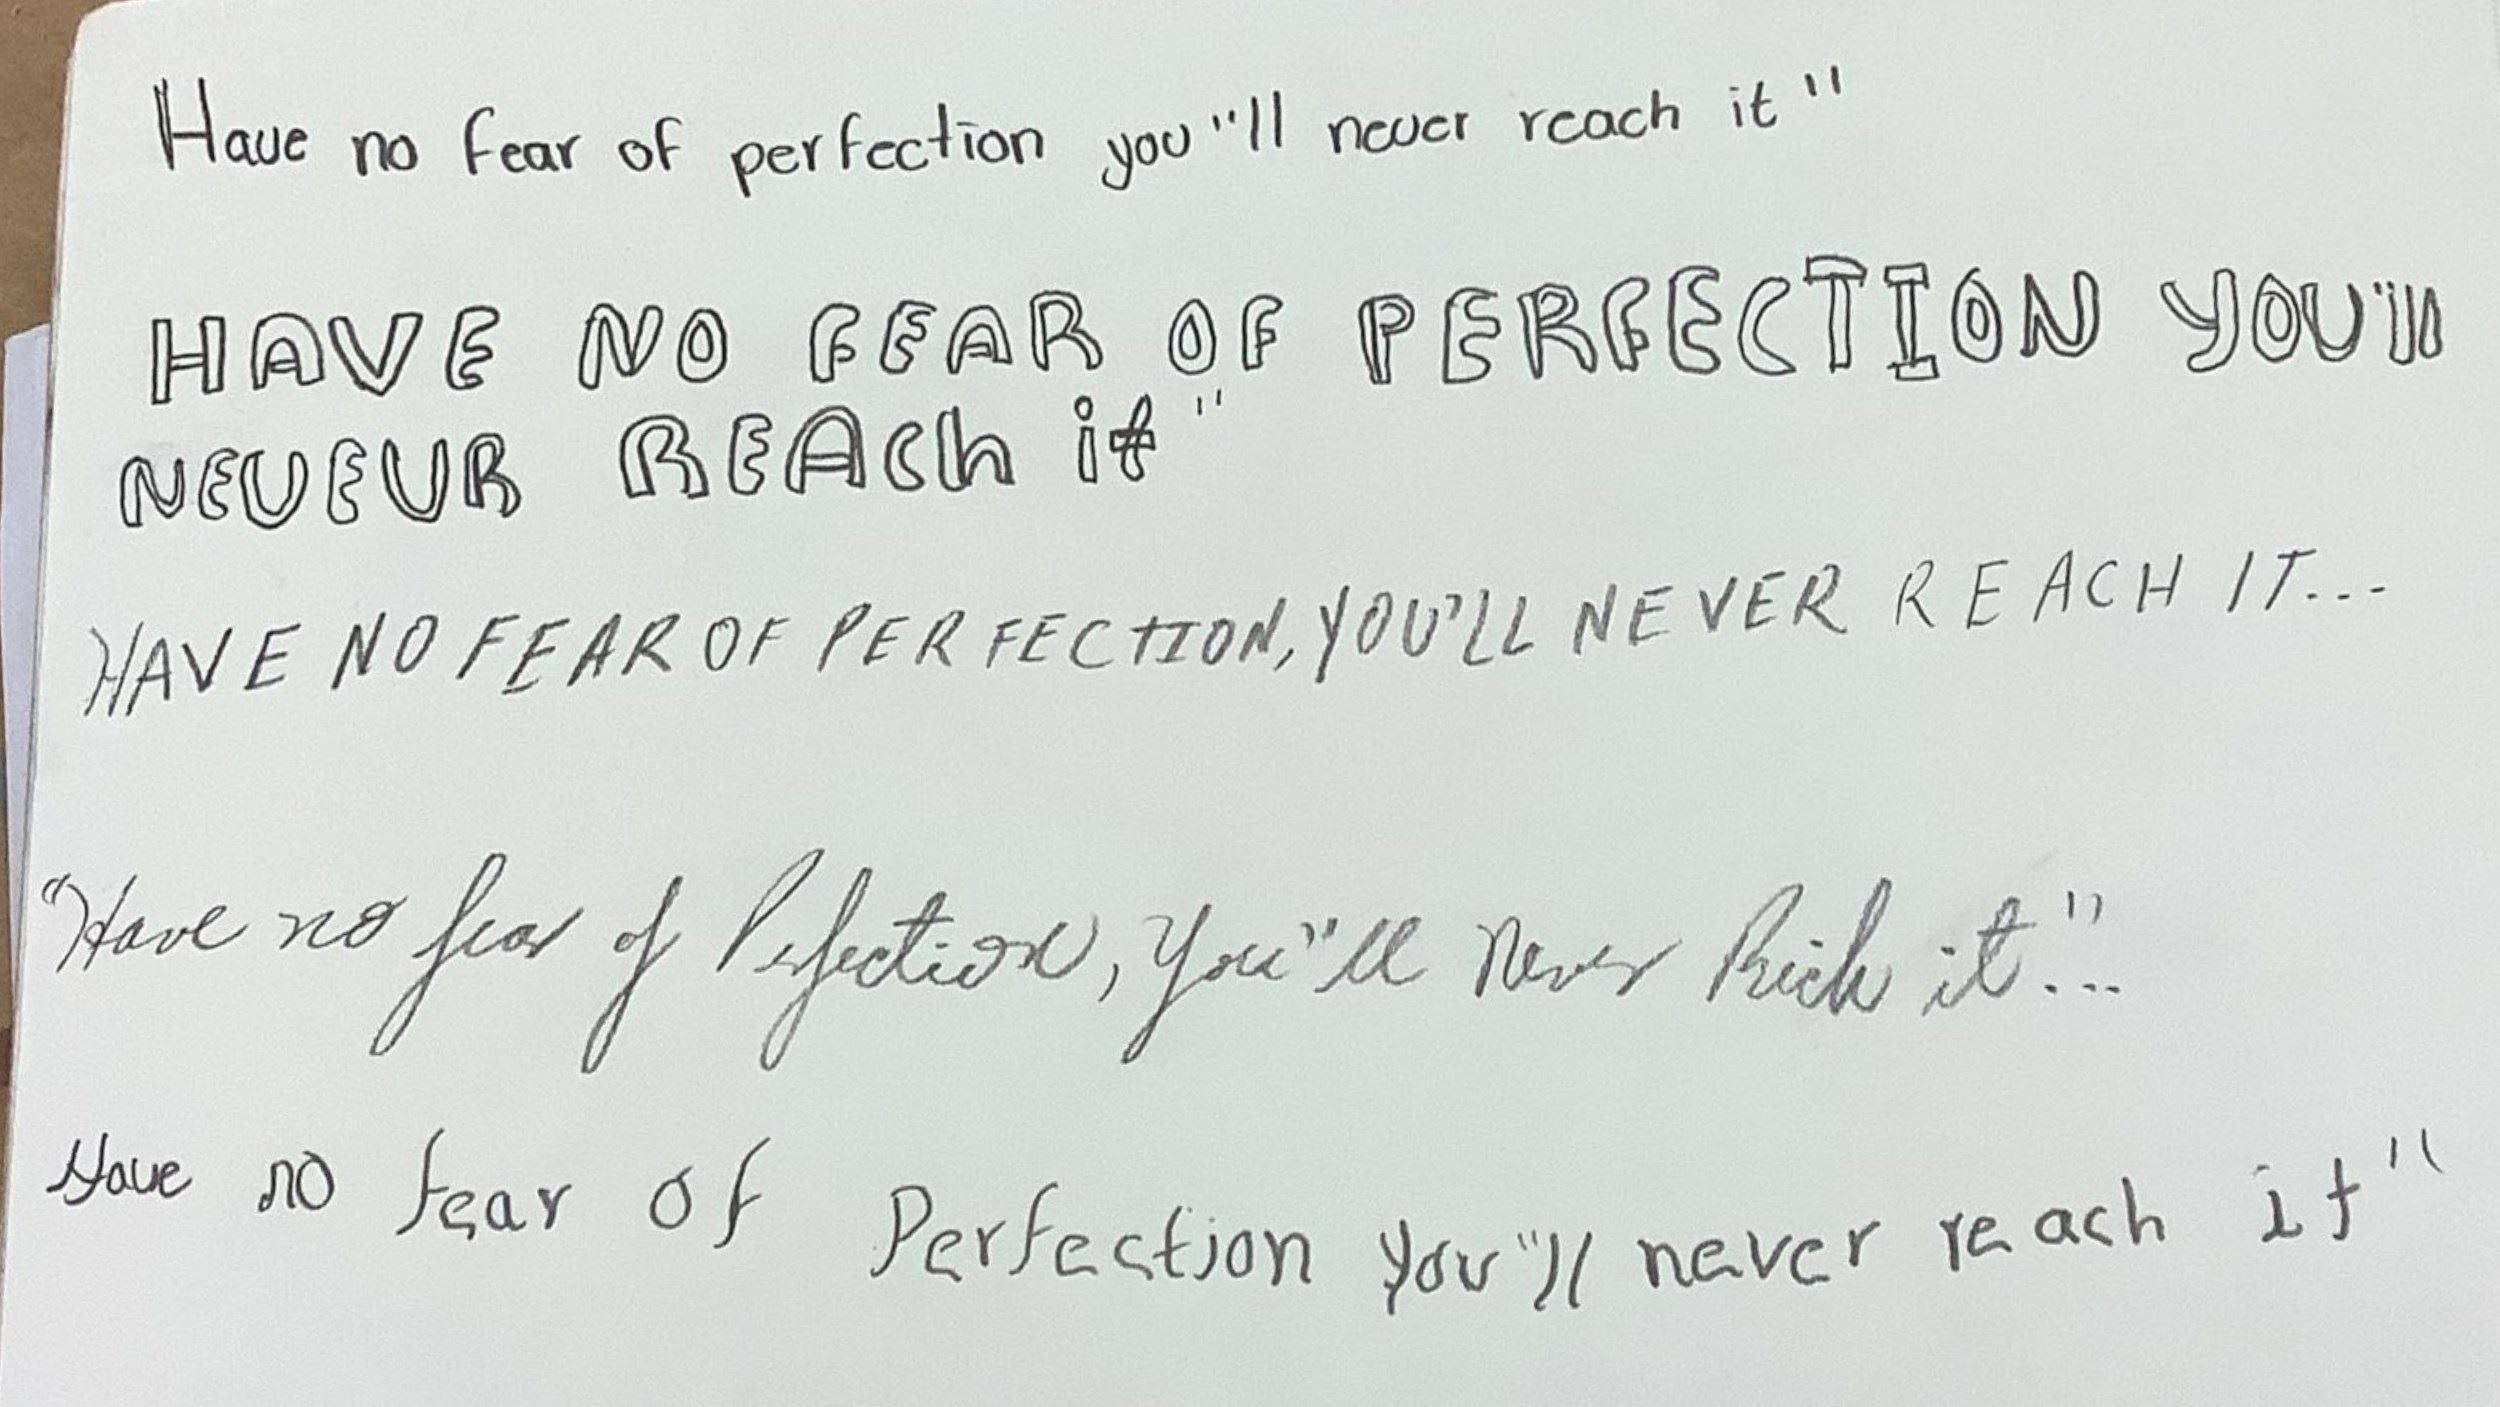 Have no fear of perfection you"ll never reach it"
HAVE NO FEAR OF PERFECTION YOU"ll
NEVEUR REACh it"
HAVE NO FEAR OF PERFECTION, YOU'LL NEVER REACH IT...
"Have no fear of Perfection, You"ll never Rich it"...
Have no fear of Perfection you"ll never reach it"